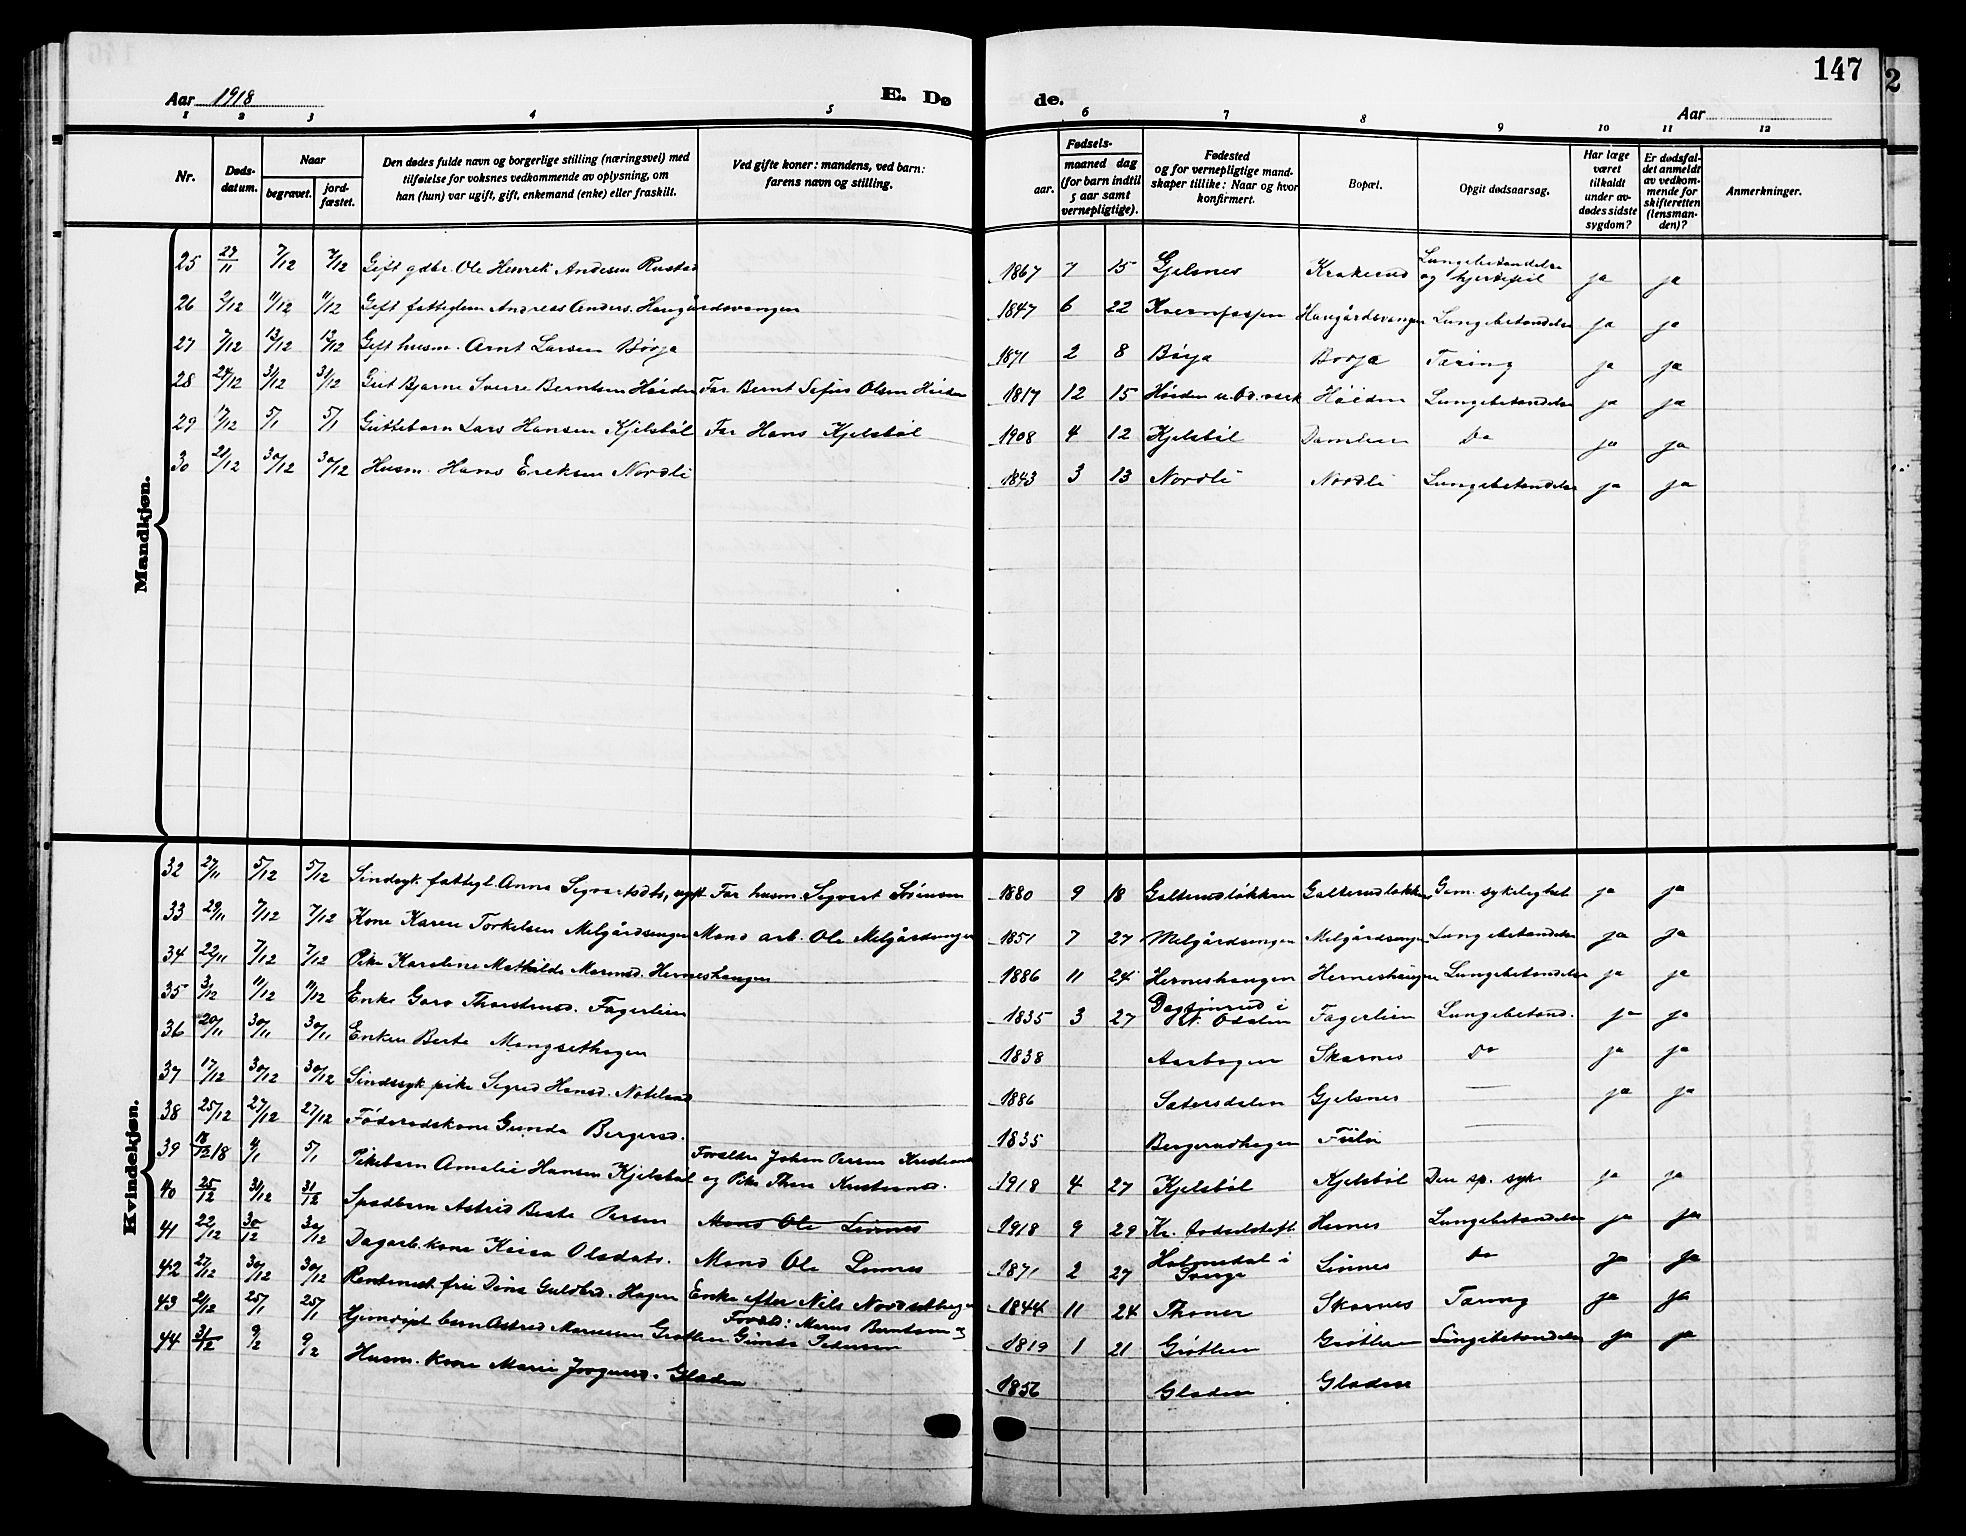 147
2
Aar 1918
E. Dø
de.
Aar
1 2 3 4 5 6 7 8 9 10 11 12
Nr.
Døds-
datum.
Naar
begravet.
jord-
fæstet.
Den dødes fulde navn og borgerlige stilling (næringsvei) med
tilføielse for voksnes vedkommende av oplysning, om
han (hun) var ugift, gift, enkemand (enke) eller fraskilt.
Ved gifte koner: mandens, ved barn:
farens navn og stilling.
Fødsels-
aar.
maaned dag
(for barn indtil
5 aar samt
vernepligtige).
Fødested
og for vernepligtige mand-
skaper tillike: Naar og hvor
konfirmert.
Bopæl.
Opgit dødsaarsag.
Har læge
været
tilkaldt
under av-
dødes sidste
sygdom?
Er dødsfal-
det anmeldt
av vedkom-
mende for
skifteretten
(lensman-
den)?
Anmerkninger.
Mandkjøn.
25 27/11 7/12 7/12 Gift gdbr. Ole Henrik Andersen Rustad 1867 7 15 Gjelsnes Krakerud Lungebetændelse og hjertefeil ja ja
26 2/12 11/12 11/12 Gift fattiglem Andreas Anders. Haugårdsvangen 1847 6 22 Haugårdsvangen Lungebetændelse ja ja
27 7/12 13/12 13/12 Gift husm. Arnt Larsen Børja 1871 2 8 Børja Borja Tæring ja ja
28 24/12 31/12 31/12 Gut Bjarne Sverre Berntsen Høiden Far Bernt Sefius Olsen Høiden 1817 12 15 Høiden Høiden Lungebetændelse ja ja
29 17/12 5/1 5/1 Guttebarn Lars Hansen Kjelsbøl Far Hans Kjelsbøl 1908 4 12 Kjelsbøl Do ja ja
30 21/12 30/12 30/12 Husm. Hans Eriksen Nordli 1843 3 13 Nordli Nordli Lungebetændelse ja ja
Kvindekjøn.
32 27/11 5/12 5/12 Sindsyk fattigl. Anna Segvartsdts, ugft Far husm. Segvart Sørensen 1880 9 18 Galterudløkken Galterudløkken Gam. sykelighet ja ja
33 29/11 7/12 7/12 Kone Karen Torkelsen Melgårdsengen Mand arb. Ole Melgårdsengen 1851 7 27 Melgårdsengen Melgårdsengen Lungebetændelse ja ja
34 22/11 7/12 7/12 Pike Karoline Mathilde Herneshaugen 1886 11 24 Herneshaugen Herneshaugen Lungebetændelse ja ja
35 3/12 11/12 11/12 Enke Goro Thorstensd. Fagerlien 1835 3 27 i N. Odalen Fagerlien Lungebetænd. ja ja
36 20/11 30/11 30/11 Enken Berte Mangsethagen 1838 Aarbogen Skarnes Do ja ja
37 17/12 30/12 30/12 Sindssyk pike Segred Hansd. 1886 Sætersdalen Gjelsnes — ja ja
38 25/12 27/12 27/12 Føderådskone Gunda Bergersd. 1835 Bergerudhagen Fulu —
39 18/12 18 4/1 5/1 Pikebarn Amalie Hansen Kjelsbøl 1918 4 27 Kjelsbøl Kjelsbøl Den sp. syke ja ja
40 25/12 31/12 31/12 Spædbarn Astrid Beate Persen Forældre Johan Persen og Pike Thea 1918 9 29 Kr. fødselsstift. Hernes Lungebetændelse ja ja
Mand Ole Linnes
41 22/12 30/12 30/12 Dagarb. kone Kaisa Olsdats. Mand Ole Linnes 1871 2 27 Holmedal i Sverge Linnes Do ja ja
42 27/12 30/12 30/12 Rentenist frue Dina Guldbrd. Hagen Enke efter Nils Nordsetberget 1844 11 24 Thoner Skarnes Tæring ja ja
43 21/12 25/1 25/1 Hjemdøpt barn Astrid Grøtlien Foreld: Marius Berntsen og Gunda Pedersen 1819 1 21 Grøtlien Grøtlien Lungebetændelse ja ja
44 31/12 9/2 9/2 Husm. kone Marie Gladen 1856 Gladen Gladen